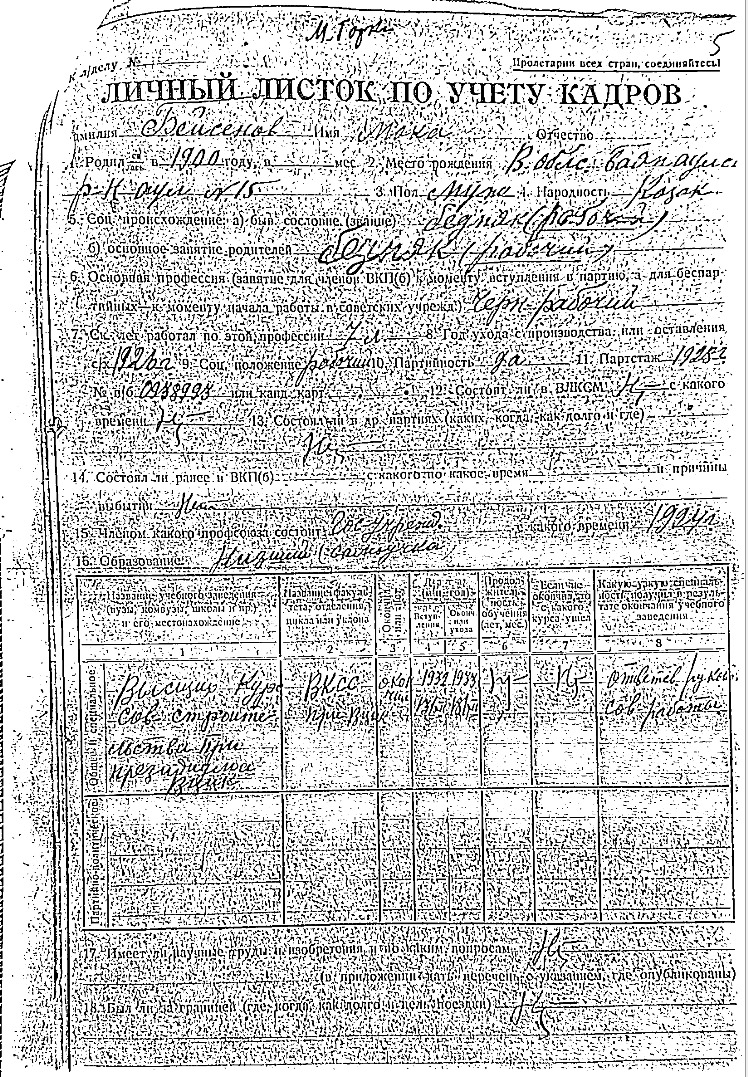 М. Горьк
5
к л/делу №
Пролетарии всех стран, соединяйтесь!
ЛИЧНЫЙ ЛИСТОК ПО УЧЕТУ КАДРОВ
Фамилия Бейсенов Имя Мока Отчество
1. Родил ся лась в 1900 году, в мес. 2. Место рождения В облс.
р-н аул №15 3. Пол муж 4. Народность Казак
5. Соц. происхождение: а) быв. сословие (звание) бедняк (рабочий)
б) основное занятие родителей бедняк (рабочий)
6. Основная профессия (занятие для членов ВКП(б) к моменту вступления в партию, а для беспар-
тийных—к моменту начала работы в советских учрежд.) Черн-рабочий
7. Ск. лет работал по этой профессии 7 л 8. Год ухода с производства или оставления
с/х 1926 г 9. Соц. положение рабочий 10. Партийность да 11. Партстаж 1925 г
№ п/б 0958995 или канд. карт. 12. Состоит ли в ВЛКСМ с какого
времени 13. Состоял ли в др. партиях (каких, когда, как долго и где)
14. Состоял ли ранее в ВКП(б) с какого по какое время и причины
выбытия Нет
15. Членом какого профсоюза состоит с какого времени 1924 г
16. Образование: Низший (самоучка)
Название учебного заведения (вузы, комвузы, школы и пр.) и его местонахождение
Название факультета, отделения, цикла или уклона
Окончил или нет
Дата (м-ц и год)
Вступления
Оконч. или ухода
Продолжительность обучения (лет, мес.)
Если не окончил, то с какого курса ушел
Какую узкую специальность получил в результате окончания учебного заведения
1 2 3 4 5 6 7 8
Общее и специальное
Высший Курс ВКСС 1932 ответ. руков
Сов. строите при сов. работы
льства при
президиума
ВЦИК
Партийно-политическое
17. Имеет ли научные труды и изобретения и по каким вопросам
(в приложении дать перечень с указанием, где опубликованы)
18. Был ли за границей (где, когда, как долго и цель поездки)